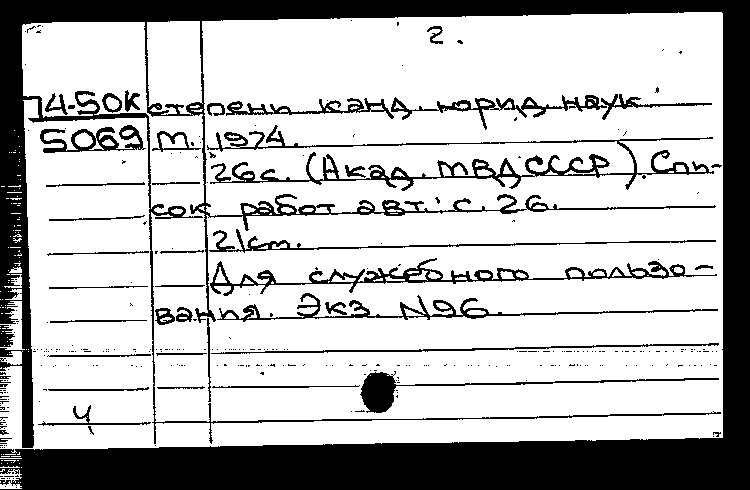 2.
74-50К степени канд. юрид. наук.
5069 М. 1974.
26с. (Акад. МВД СССР). Спи-
сок работ авт.: с. 26.
21см.
Для служебного пользо-
вания. Экз. N96.
4